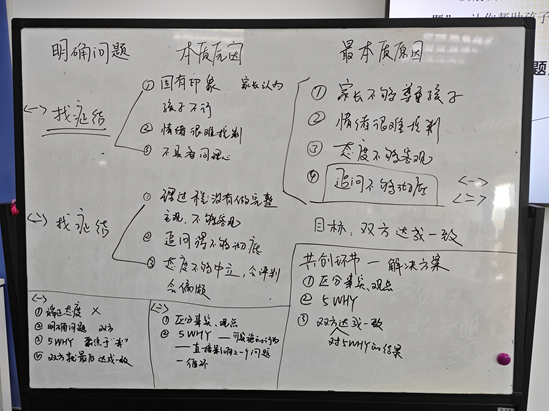 明确问题
本质原因
最本质原因
<一> 找症结
① 固有印象 家长认为
孩子不行
② 情绪很难控制
③ 不具有同理心
① 家长不够尊重孩子
② 情绪很难控制
③ 态度不够客观
④ 追问不够彻底
<一>
<二>
<二> 找症结
① 过程没有做完整
主观,不够客观
② 追问得不够彻底
③ 态度不够中立,会评判
会偏颇
目标:双方达成一致
<一>
① 态度 ×
② 明确问题 双方
③ 5WHY 聚焦于"我"
④ 双方达成一致
<二>
① 区分事实、观点
② 5WHY
直接影响上一个问题
循环
共创环节 — 解决方案
① 区分事实、观点
② 5WHY
③ 双方达成一致
对5WHY的结果